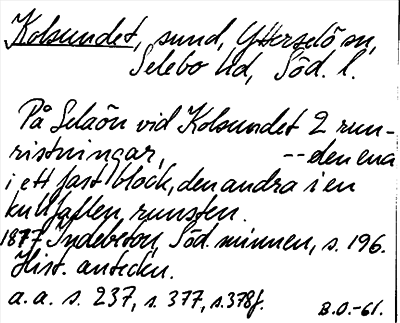 Kolsundet, sund, Ytterselö sn,
Selebo hd, Söd. l.
På Selaön vid Kolsundet 2 run-
ristningar, -- den ena
i ett fast block, den andra i en
kullfallen runsten.
1877 Indebetou, Söd. minnen, s. 196.
Hist. anteckn.
a. a. s. 237, s. 377, s. 378f.
B.O.-61.